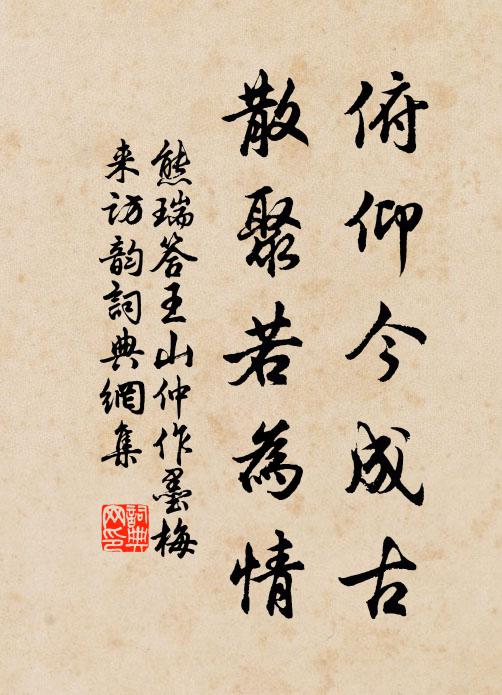 俯仰今成古
散聚若為情
熊瑞答王山仲作墨梅
来訪韵詞典網集
詞典网印